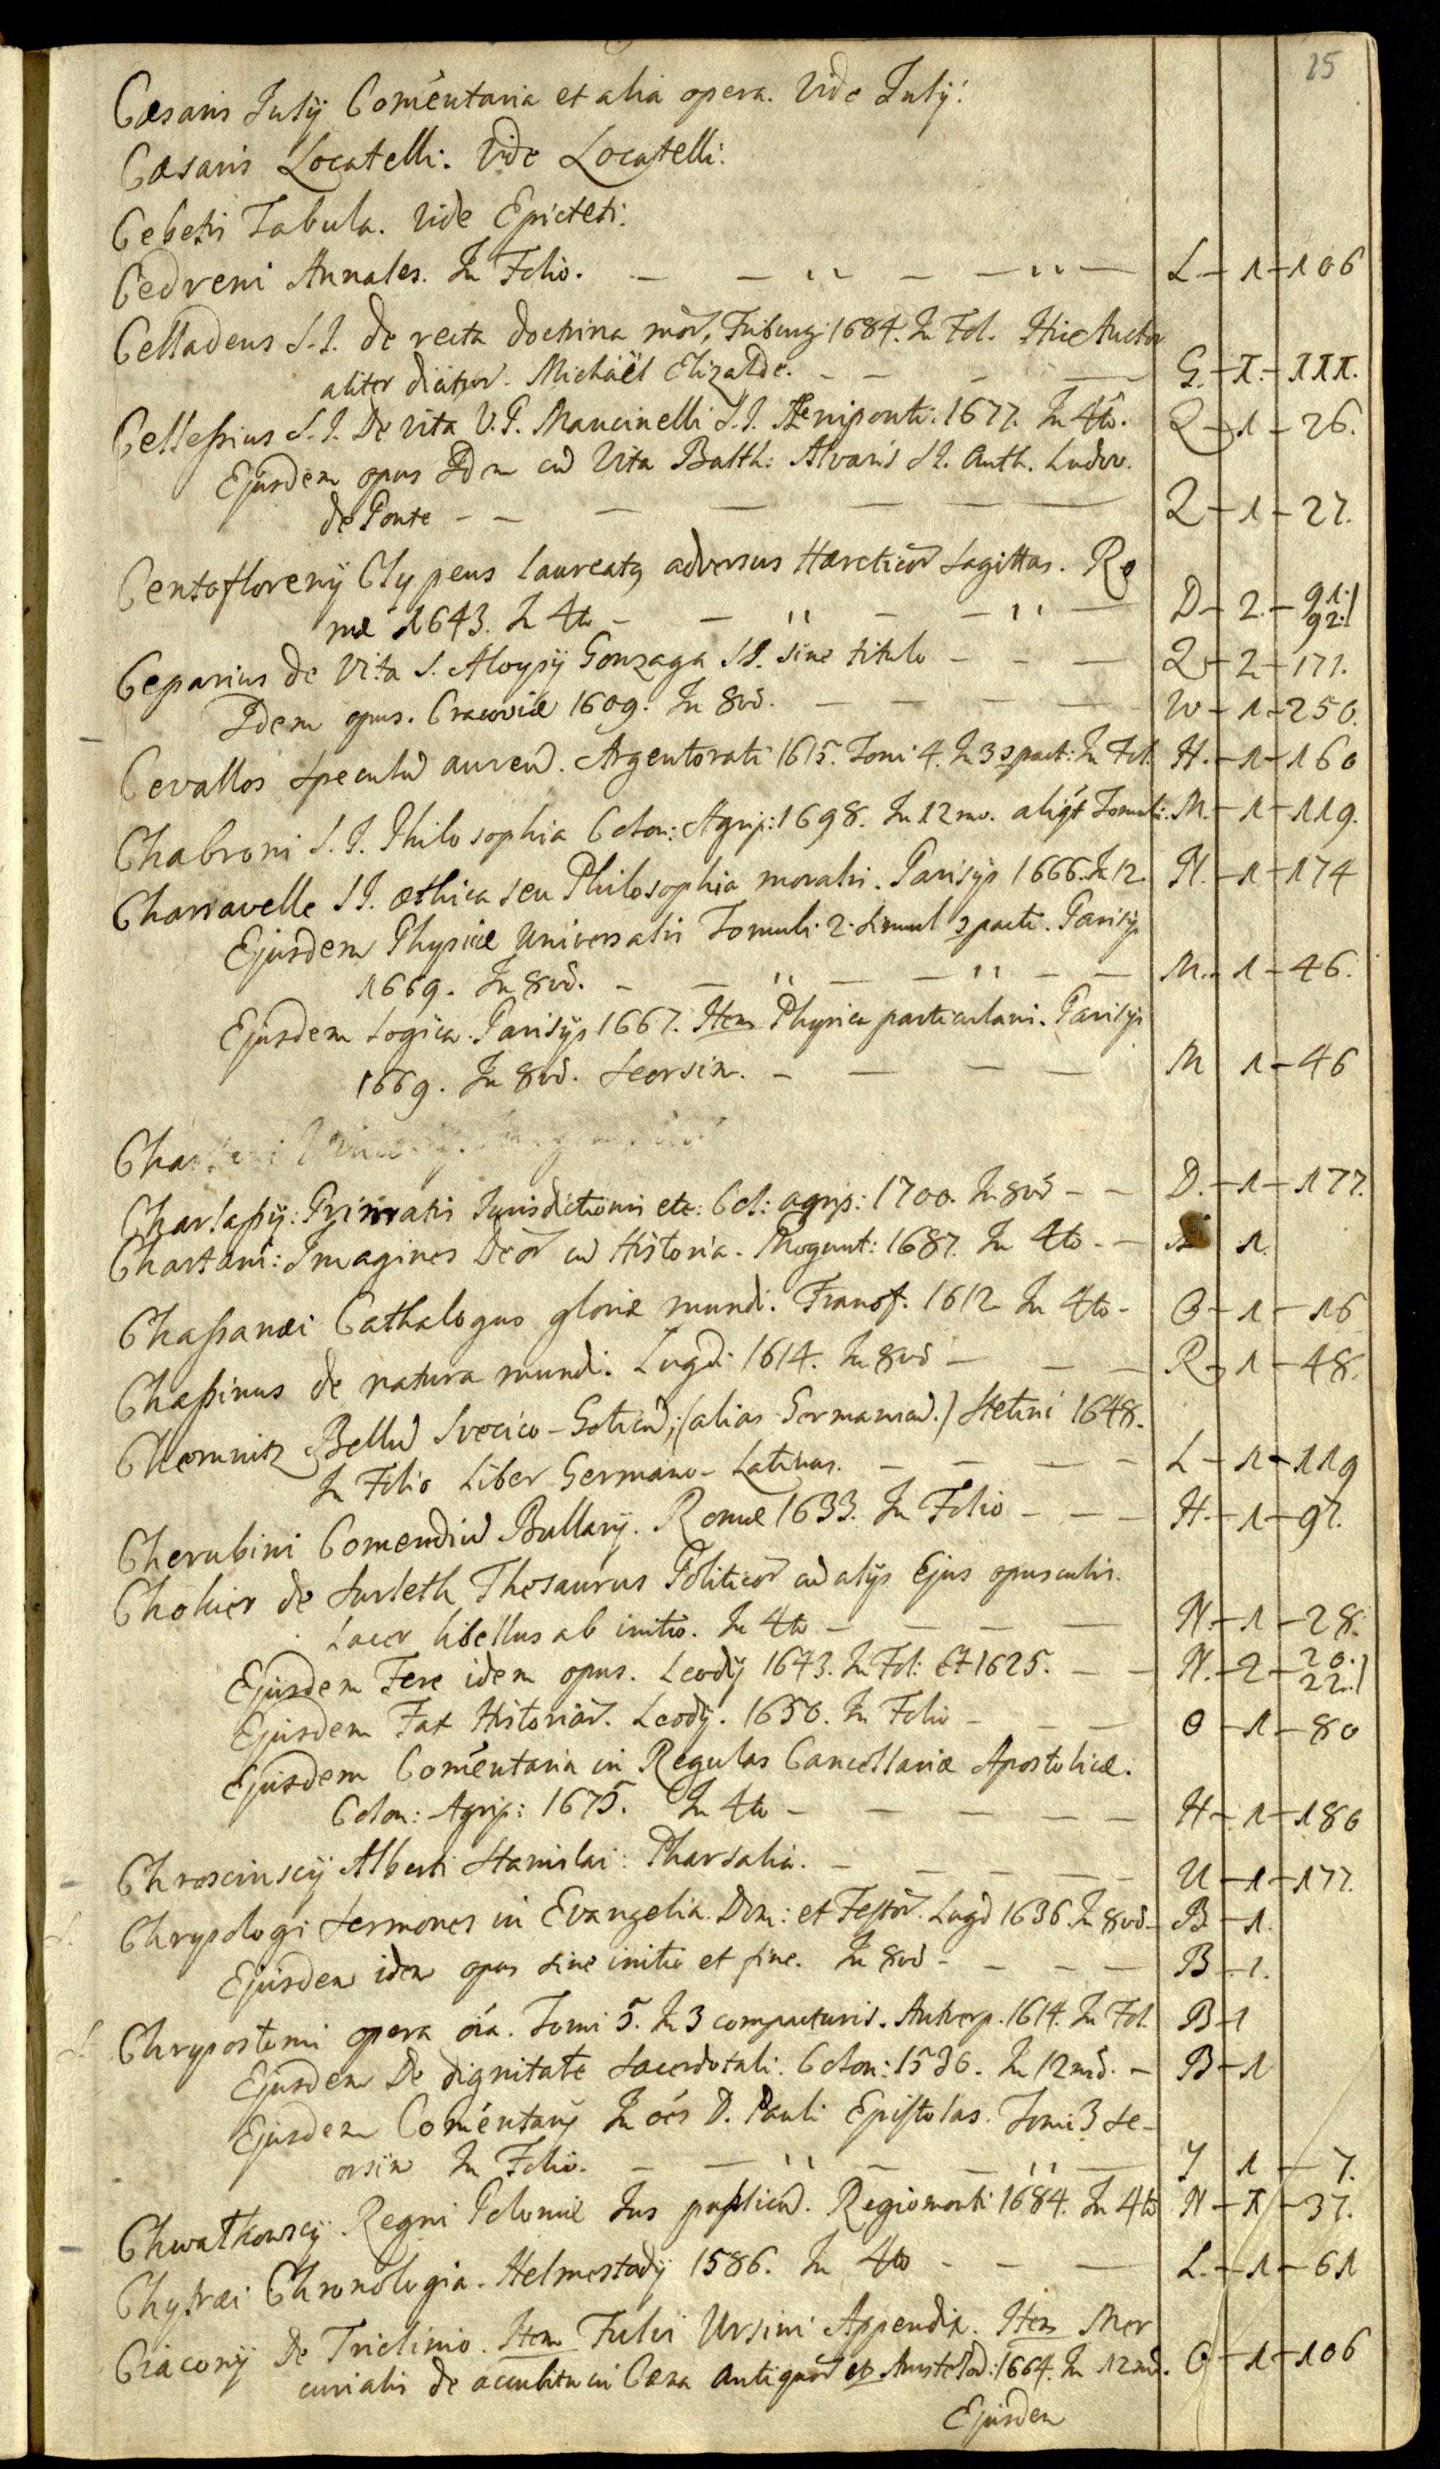 25
Cæsaris Julÿ Coméntaria et alia opera. Vide Julÿ.
Cæsaris Locatelli. Vide Locatelli.
Cebetis Tabula. Vide Epicteti.
Cedreni Annales. In Folio. — — " — — " — L — 1 — 106
Celladeus S.I. de recta doctrina mor, Friburg: 1684. In Fol. Hic Auctor
aliter dicitur. Michäel Elizalde. — — — — G. — I. — III.
Cellesius S.I. De vita V.P. Mancinelli S.I. Æniponti: 1677. In 4to. Q — 1 — 26.
Ejusdem opus Idem cu Vita Balth: Alvaris S.I. Auth. Ludov.
de Ponte — — — — — — Q — 1 — 27.
Centofloreny Clypeus laureatq adversus Hæreticor Sagittas. Ro
mæ 1643. In 4to — — " — — " — D — 2. — 91. 92.
Ceparius de Vita S. Aloysÿ Gonzaga S.I. sine titulo — — — Q — 2 — 171.
Idem opus. Cracoviæ 1609. In 8vo. — — — — W — 1 — 250.
Cevallos Speculu aureu. Argentorati 1615. Tomi 4. In 3 part: In Fol. H. — 1 — 160
Chabroni S.I. Philosophia Colon: Agrip: 1698. In 12mo. Tomuli. M. — 1 — 119.
Charravelle S.I. æthica seu Philosophia moralis. Parisÿs 1666. In 12. N. — 1 — 174
Ejusdem Physicæ Universalis Tomuli 2. simul. Parisÿs
1669. In 8vo. — — " — — " — — M. — 1 — 46.
Ejusdem Logica. Parisÿs 1667. Item Physica particularis. Parisÿs
1669. In 8vo. Seorsim. — — — — M 1 — 46
Charlasÿ: Primatis Jurisdictionis etc: Col: agrip: 1700. In 8vo — — D. — 1 — 177.
Chartani: Imagines Deor cu Historia. Mogunt: 1687. In 4to — — 1.
Chassanæi Cathalogus gloriæ mundi. Francf. 1612 In 4to — O — 1 — 16
Chæssinus de natura mundi. Lugd: 1614. In 8vo — — — R — 1 — 48.
Chemnitz Bellu Svecico-Goticu, (alias Germanicu.) Stetini 1648.
In Folio Liber Germano-Latinus. — — — — L — 1 — 119
Cherubini Comendiu Bullarÿ. Romæ 1633. In Folio — — — H. — 1 — 97.
Chokier de Surleth Thesaurus Politicor cu alÿs Ejus opusculis.
Lacer libellus ab initio. In 4to — — — — N. — 1 — 28.
Ejusdem Fere idem opus. Leodÿ 1643. In Fol: Et 1625. — — N. — 2 — 20. 22.
Ejusdem Fax Historiar. Leodÿ. 1650. In Folio — — — O — 1 — 80
Ejusdem Coméntaria in Regulas Cancellariæ Apostolicæ.
Colon: Agrip: 1675. In 4to — — — — — H — 1 — 186
Chroscinscÿ Alberti Stanislai: Pharsalia. — — — — U — 1 — 177.
Chrysologi Sermones in Evangelia Dom: et Festor. Lugd 1636. In 8vo — B — 1.
Ejusdem idem opus sine initio et fine. In 8vo — — — — B — 1.
Chrysostomi opera oia. Tomi 5. In 3 compacturis. Antverp. 1614. In Fol. B — 1
Ejusdem De dignitate Sacerdotali. Colon: 1530. In 12mo. — B — 1
Ejusdem Coméntarÿ In oés D. Pauli Epistolas. Tomi 3 se-
orsim In Folio. — — " — — " — J 1 — 7.
Chwałkowscÿ Regni Poloniæ Jus publicu. Regiomonti 1684. In 4to N — I — 37.
Chytræi Chronologia. Helmestadÿ 1586. In 4to — — — L. — 1 — 61
Ciaconÿ De Triclinio. Item Fulvi Ursini Appendix. Item Mer
curialis de accubitu in Cæna antiquor Amstelod: 1664. In 12mo. O — 1 — 106
Ejusdem